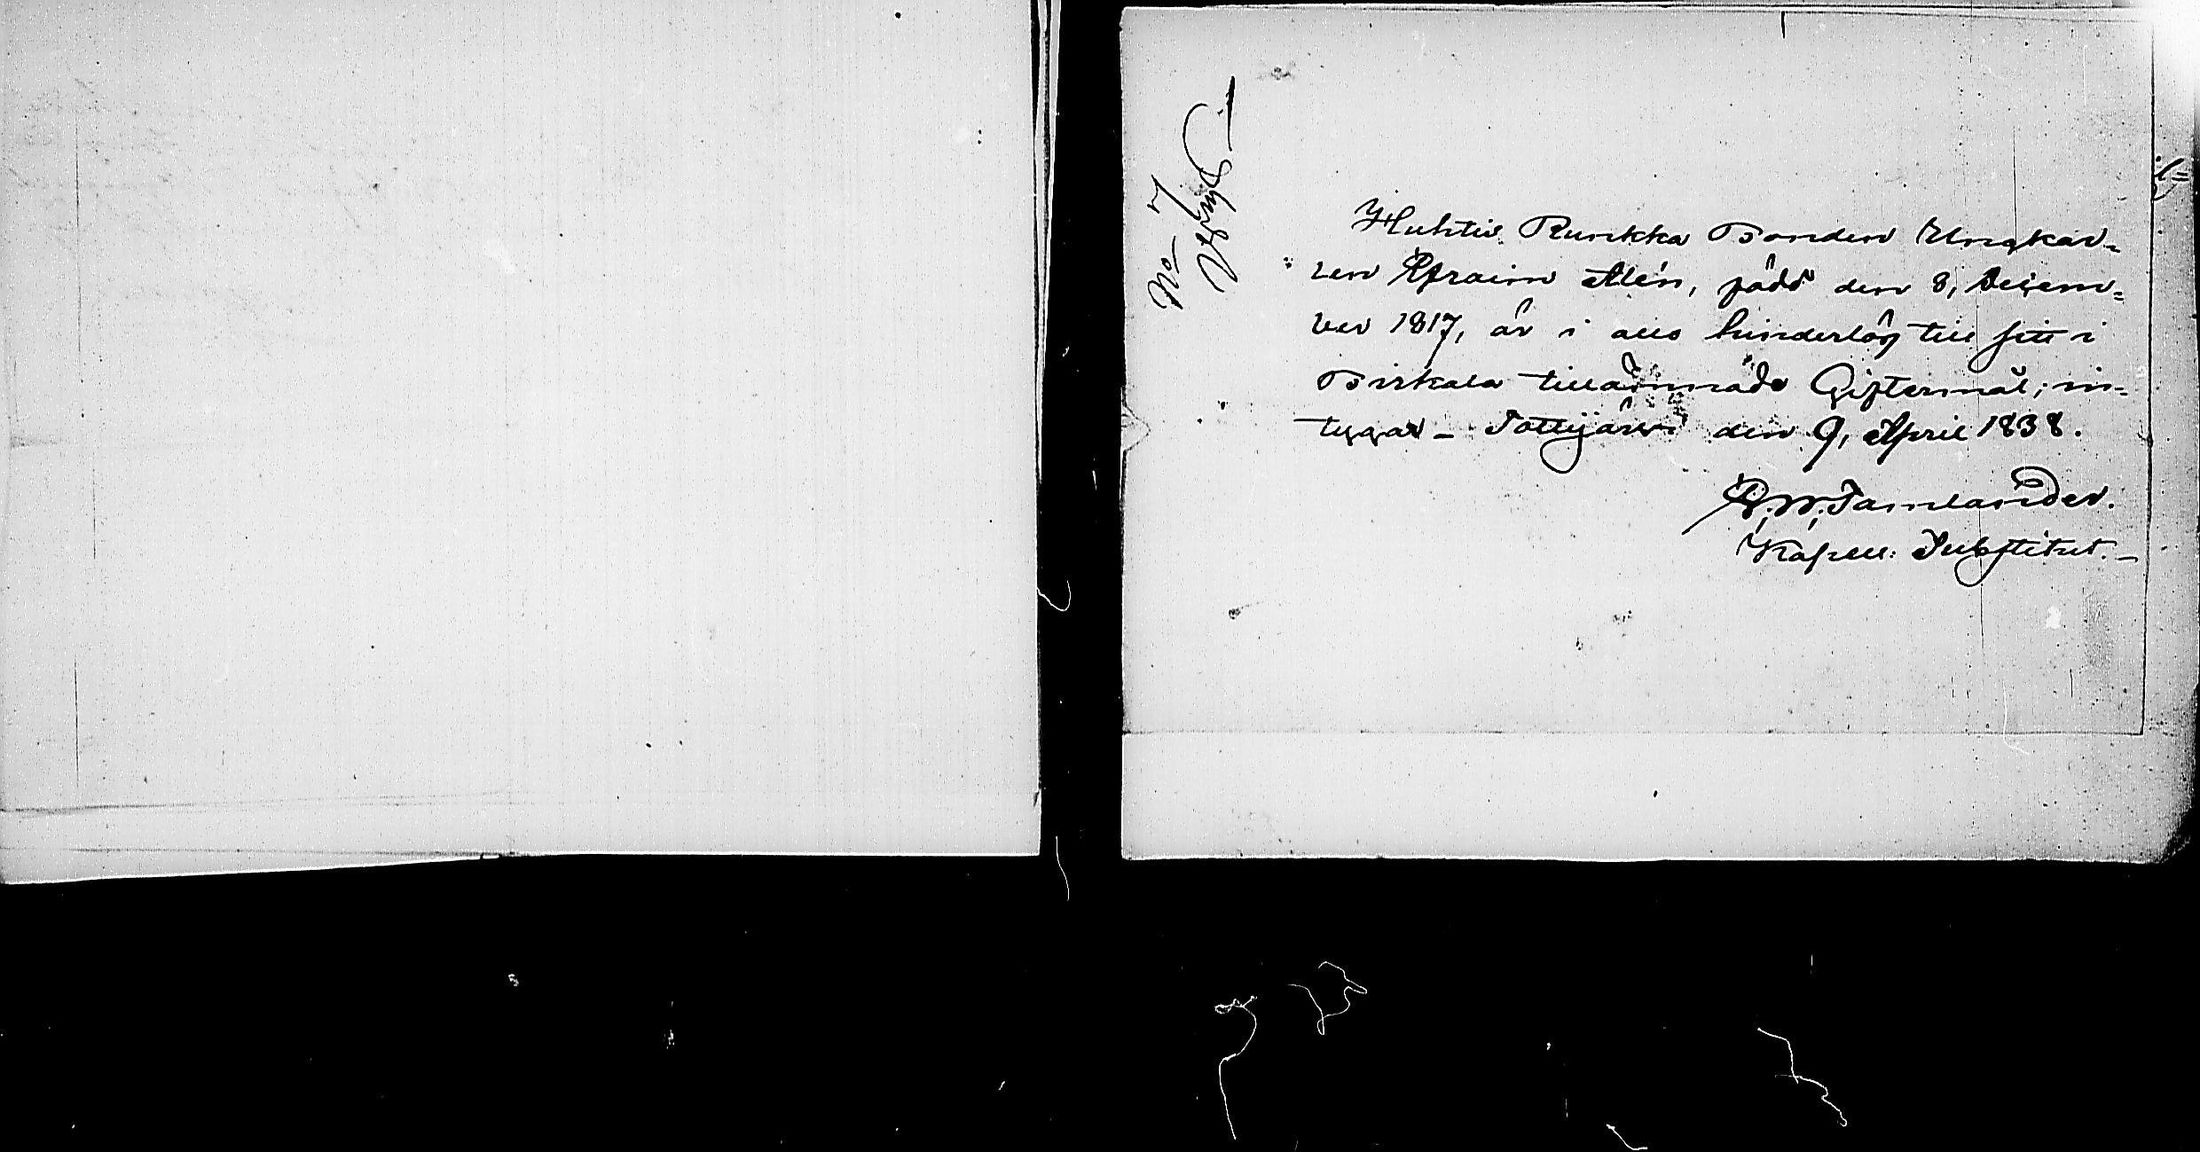 No 7
Huhtis Runkka Bonden Ungkar=
len Efraim Alén, född den 8, Decem=
ber 1817, är i allo hinderlög till sitt i
Birkala tillärnnade Giftermål; in=
tygar – Tottijärvi den 9, April 1838.
E. W. Tamlander.
Kapell: Substitut. –